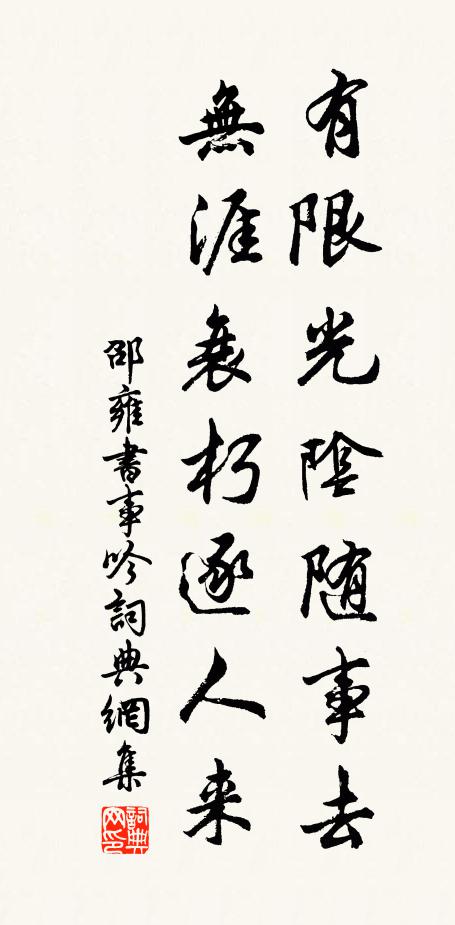 有限光陰随事去
無涯衰朽逐人来
邵雍書事吟詞典網集
詞典網印